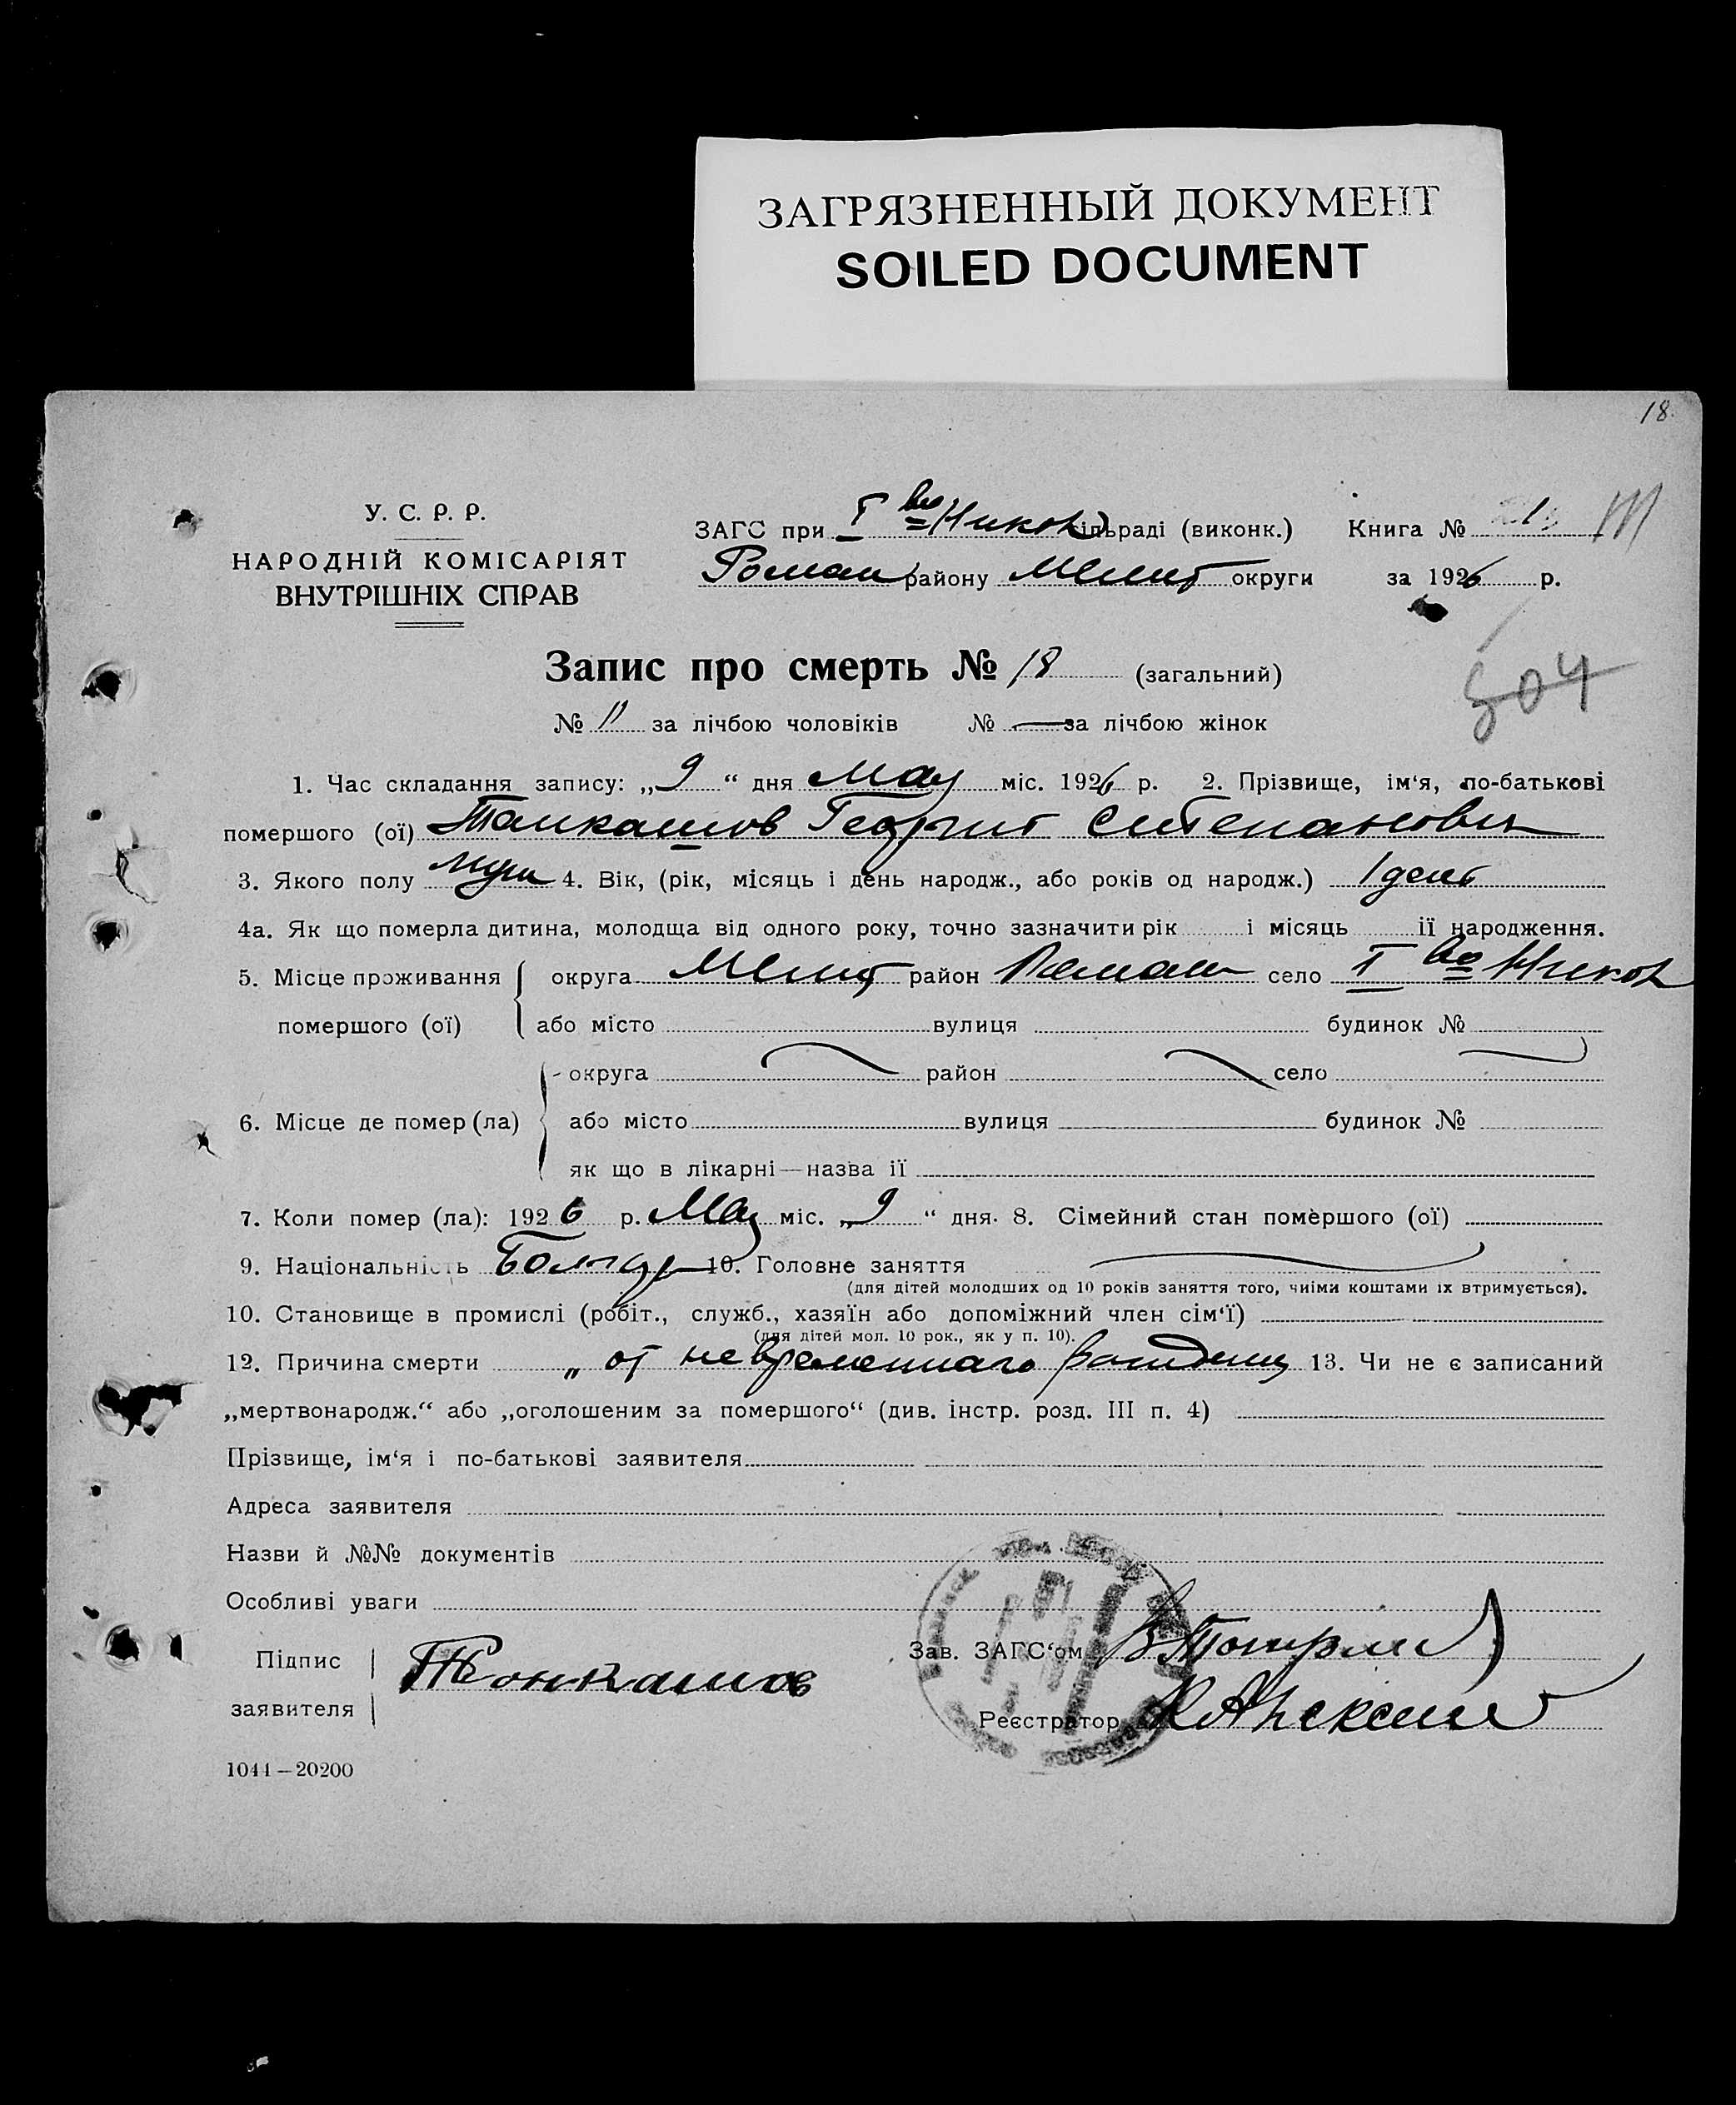 ЗАГРЯЗНЕННЫЙ ДОКУМЕНТ
SOILED DOCUMENT
18
У. С. Р. Р.
НАРОДНІЙ КОМІСАРІЯТ
ВНУТРІШНІХ СПРАВ
ЗАГС при I во Никол сільраді (виконк.) Книга № 1
Роман району Мелит округи за 1926 р.
Запис про смерть № 18 (загальний)
504
№ 11 за лічбою чоловіків № — за лічбою жінок
1. Час складання запису: „9“ дня Мая міс. 1926 р. 2. Прізвище, ім‘я, по-батькові
помершого (ої) Танкашов Георгий Степанович
3. Якого полу муж 4. Вік, (рік, місяць і день народж., або років од народж.) 1 день
4а. Як що померла дитина, молодща від одного року, точно зазначити рік і місяць її народження.
5. Місце проживання помершого (ої) округа Мелит район Роман село I во Никол
або місто вулиця будинок №
6. Місце де помер (ла) округа район село
або місто вулиця будинок №
як що в лікарні—назва її
7. Коли помер (ла): 1926 р. Мая міс. „9“ дня. 8. Сімейний стан помершого (ої)
9. Національність Болгар 10. Головне заняття
(для дітей молодших од 10 років заняття того, чиїми коштами їх втримується).
10. Становище в промислі (робіт., служб., хазяїн або допоміжний член сім‘ї)
(для дітей мол. 10 рок., як у п. 10).
12. Причина смерти „от невременнаго рождения 13. Чи не є записаний
„мертвонародж.“ або „оголошеним за помершого“ (див. інстр. розд. III п. 4)
Прізвище, ім‘я і по-батькові заявителя
Адреса заявителя
Назви й №№ документів
Особливі уваги
Підпис заявителя Тонкашов
Зав. ЗАГС‘ом
Реєстратор
1044—20200